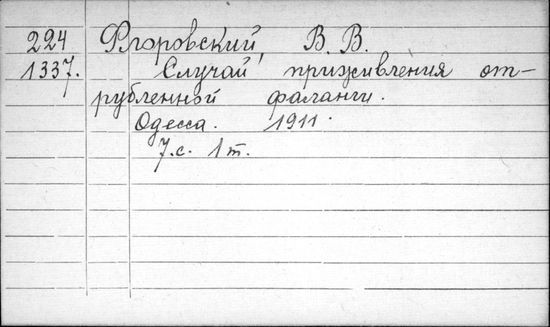 224 Флоровский, В. В.
1337. Случай приживления от-
рубленной фаланги.
Одесса. 1911.
7.с. 1 т.